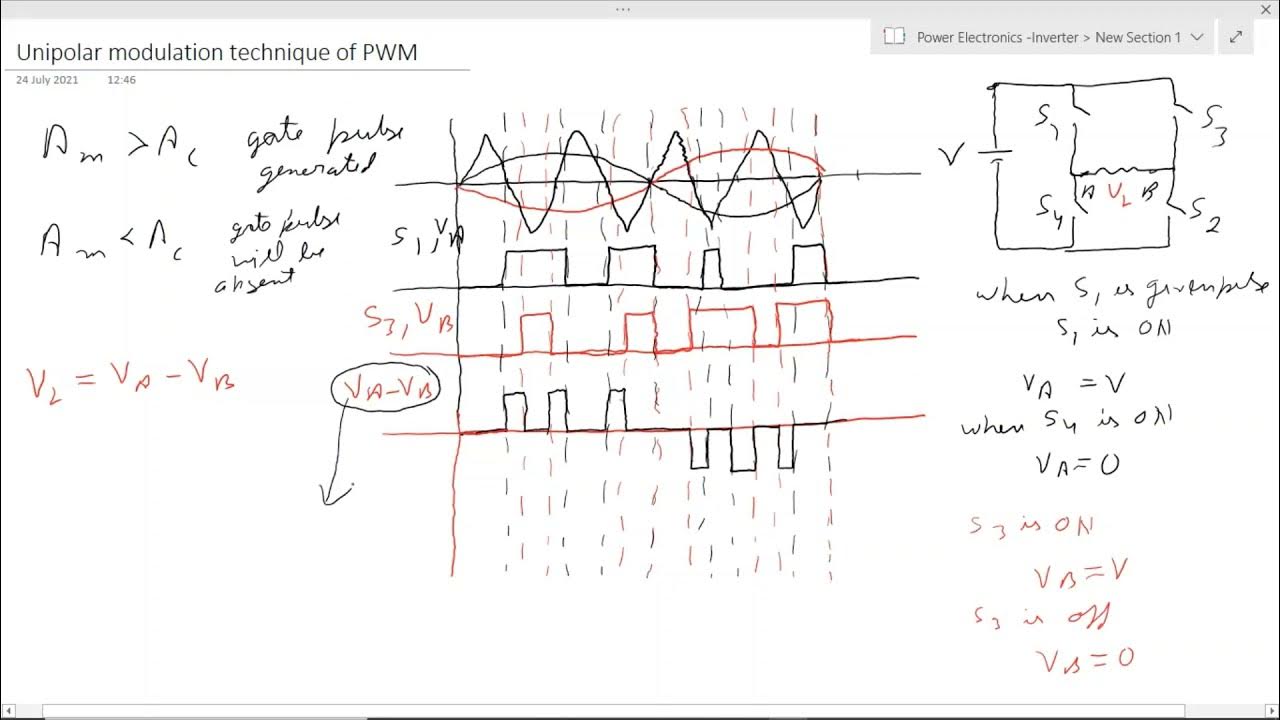 Power Electronics -Inverter > New Section 1
Unipolar modulation technique of PWM
24 July 2021 12:46
Am > Ac gate pulse
generated
Am < Ac gate pulse
will be
absent
VL = VA - VB
S1, VA
S3, VB
VA-VB
V
S1
S3
A VL B
S4
S2
when S1 is given pulse
S1 is ON
VA = V
when S4 is ON
VA = 0
S3 is ON
VB = V
S3 is off
VB = 0